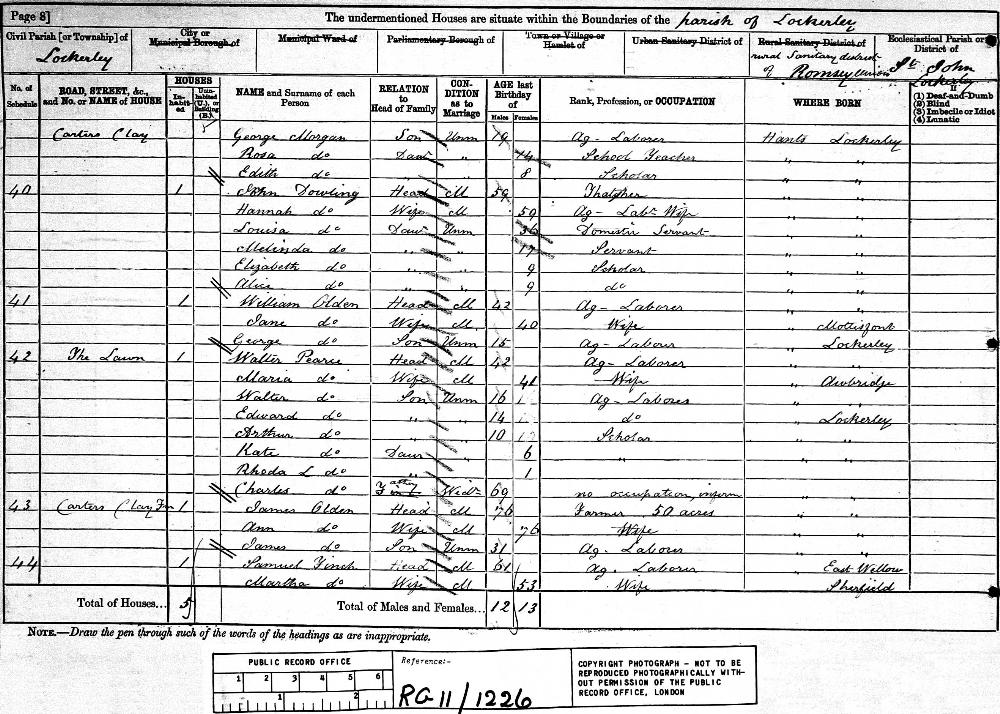 Page 8] The undermentioned Houses are situate within the Boundaries of the parish of Lockerley
Civil Parish [or Township] of City or Municipal Borough of Municipal Ward of Parliamentary Borough of Town or Village or Hamlet of Urban Sanitary District of Rural Sanitary District of Ecclesiastical Parish or District of
Lockerley rural Sanitary district of Romsey union St John Lockerley
No. of Schedule ROAD, STREET, &c., and No. or NAME of HOUSE HOUSES Inhabited Uninhabited (U.), or Building (B.) NAME and Surname of each Person RELATION to Head of Family CONDITION as to Marriage AGE last Birthday of Males Females Rank, Profession, or OCCUPATION WHERE BORN (1) Deaf-and-Dumb (2) Blind (3) Imbecile or Idiot (4) Lunatic
Carters Clay George Morgan Son Unm 19 Ag- Laborer Hants Lockerley
Rosa do Daur " 14 School Teacher " "
Edith do " " 8 Scholar " "
40 1 John Dowling Head M 59 Thatcher " "
Hannah do Wife M 59 Ag- Labr Wife " "
Louisa do Daur Unm 36 Domestic Servant " "
Melinda do " " 17 Servant " "
Elizabeth do " " 9 Scholar " "
Alice do " " 9 do " "
41 1 William Olden Head M 42 Ag- Laborer " "
Jane do Wife M 40 Wife " Mottisfont
George do Son Unm 15 Ag- Labour " Lockerley
42 The Lawn 1 Walter Pearce Head M 42 Ag- Laborer " "
Maria do Wife M 41 Wife " Awbridge
Walter do Son Unm 16 Ag- Laborer " "
Edward do " " 14 do " Lockerley
Arthur do " " 10 Scholar " "
Kate do Daur 6 " " "
Rhoda L do " 1 " "
Charles do Father Widr 69 no occupation, infirm " "
43 Carters Clay Fm 1 James Olden Head M 76 Farmer 50 acres " "
Ann do Wife M 76 Wife " "
James do Son Unm 31 Ag. Laborer " "
44 1 Samuel Finch Head M 61 Ag. Laborer " East Wellow
Martha do Wife M 53 Wife " Sherfield
Total of Houses... 5 Total of Males and Females... 12 13
NOTE.—Draw the pen through such of the words of the headings as are inappropriate.
PUBLIC RECORD OFFICE
1 2 3 4 5 6
1 2
Reference:-
RG 11/1226
COPYRIGHT PHOTOGRAPH - NOT TO BE
REPRODUCED PHOTOGRAPHICALLY WITH-
OUT PERMISSION OF THE PUBLIC
RECORD OFFICE, LONDON